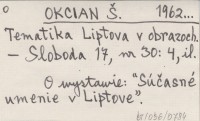 o OKCIAN Š. 1962...
Tematika Liptova v obrazoch.
— Sloboda 17, nr 30: 4, il.
O wystawie: "Súčasné
umenie v Liptove".